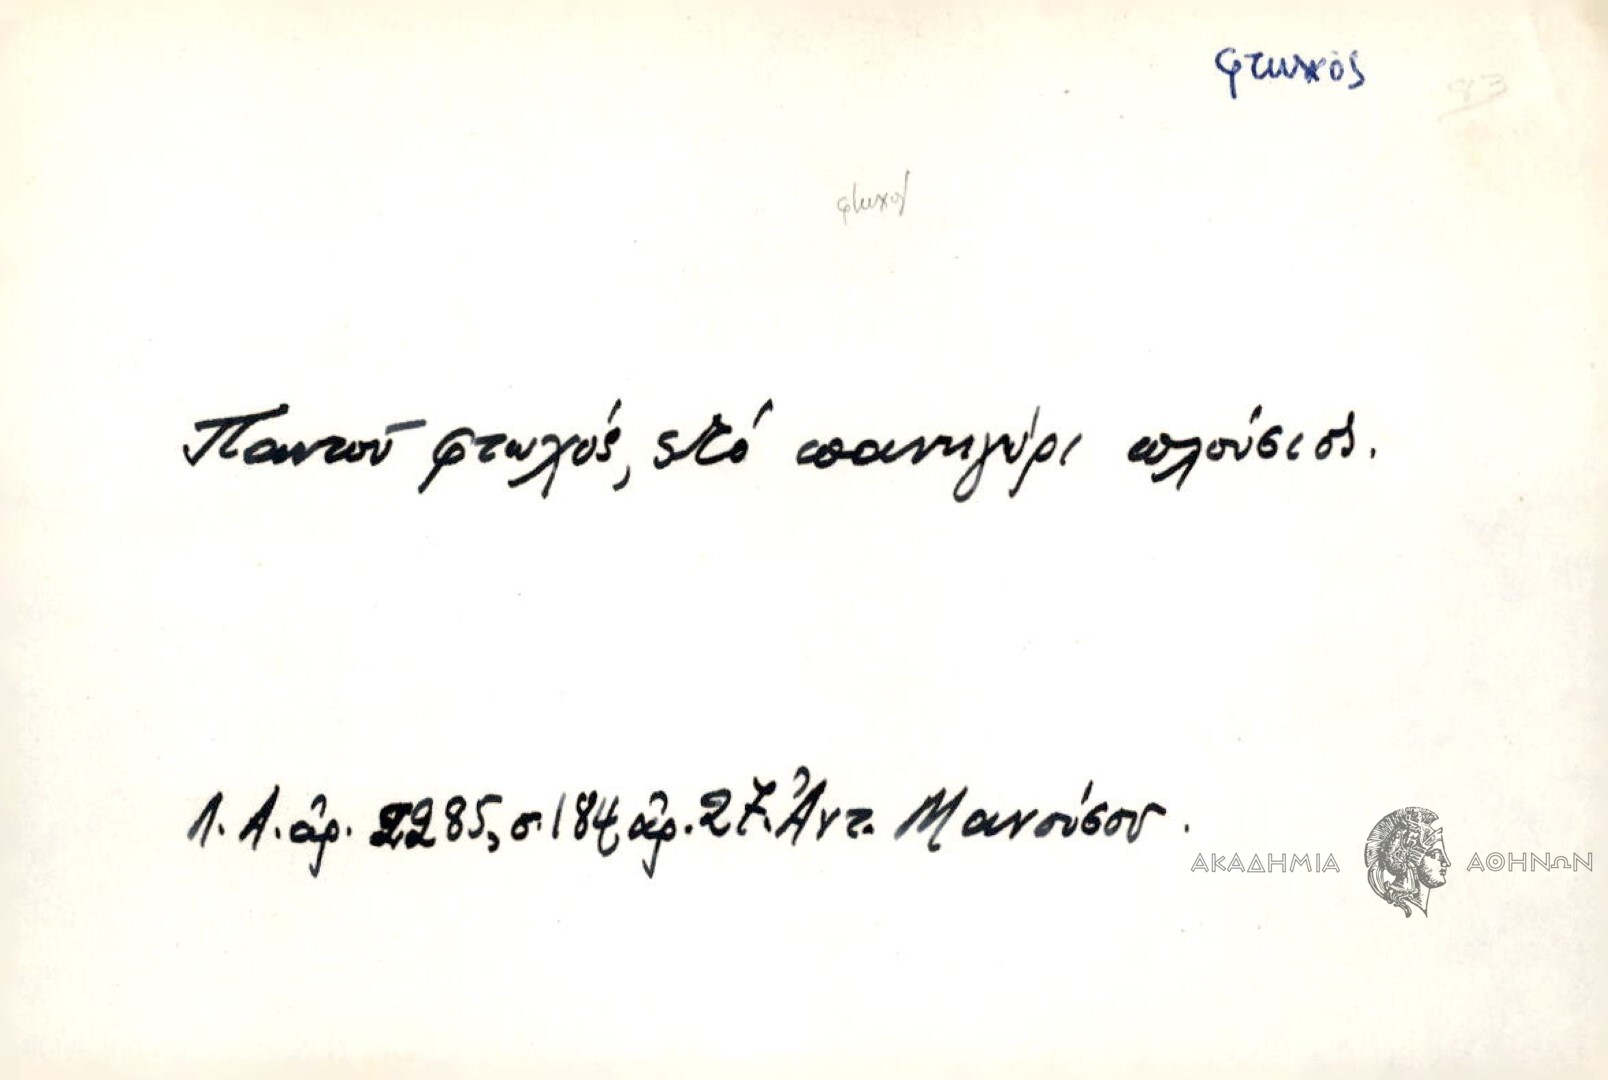 φτωχὸς
93
φτωχός
Παντοῦ φτωχός, στό πανηγύρι πλούσιος.
Λ. Α. ἀρ. 2285, σ. 184, ἀρ. 27. Ἀντ. Μανούσου.
ΑΚΑΔΗΜΙΑ ΑΘΗΝΩΝ